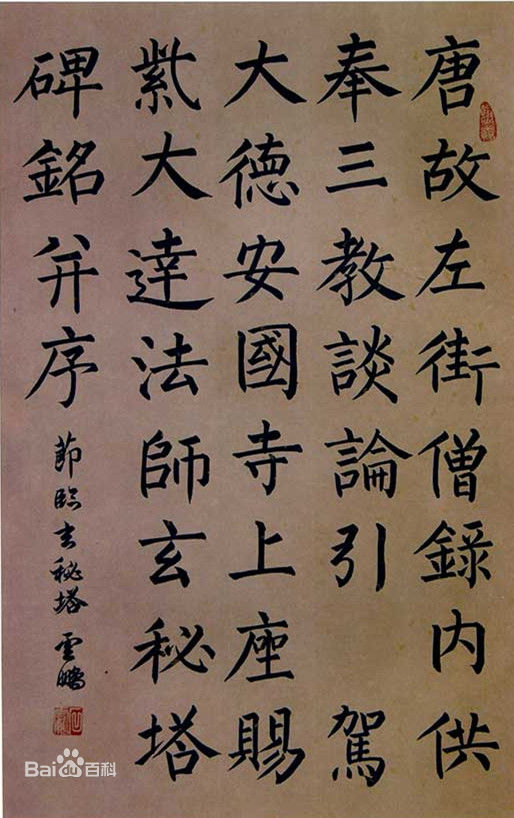 唐故左街僧録内供
奉三教談論引駕
大德安國寺上座賜
紫大達法師玄秘塔
碑銘并序
節臨玄秘塔 雲鵬
Bai du 百科